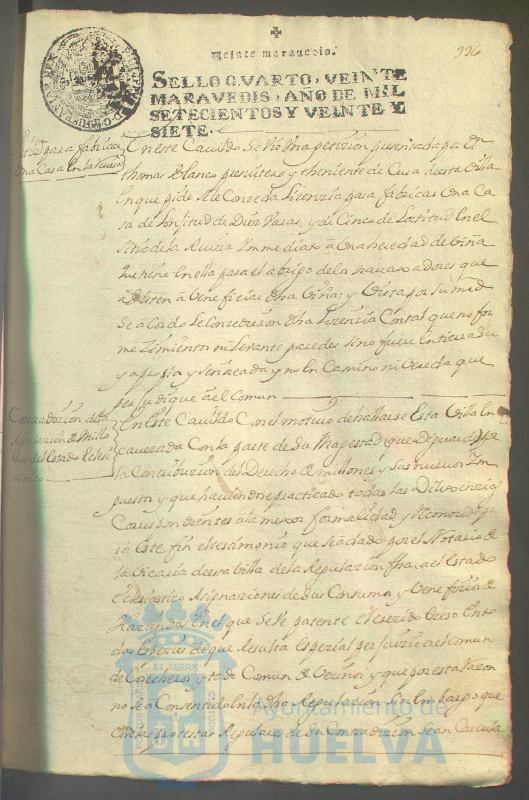 336
Veinte maravedis.
SELLO QVARTO, VEINTE
MARAVEDIS, AÑO DE MIL
SETECIENTOS Y VEINTE Y
SIETE.
para fabricar
Una Casa en la
En este Cavildo se Vio Una petizion presentada por Dn
thomas Blanco presvitero y theniente de Cura desta Villa
En que pide se le Conzeda Lizenzia para fabricar Una Ca
sa de Lonjitud de Diez Varas, y de Cinco de Latitud En el
Sitio de la Rivera Ynmediato a Una heredad de Viña
que tiene En ella para el abrigo de los travaxadores que
asisten a Veneficiar dha Viña; y Vista por Su mrd
Se acordo Le Conzedieron dha Lizenzia Con tal que no for
me Zimientos ni Levante paredes sino fuere En tierra Su
ya propia y Senareada y no En Camino ni Vereda que
perjudique a el Comun
Contradizion de la
Regulazion de Millo
nes del Estado Ecclesi
astico
En Este Cavildo Con el motivo de hallarse Esta Villa En
cavezada Con la parte de Su Magestad (que Dios guarde) por
la Contribuzion del Derecho de millones y Sus nuevos Ym
puestos y que haviendose practicado todas las Dilixencias
Correspondientes a la mexor formalidad y
Este fin el testimonio que se a dado por el Notario de
la Vicaria de esta Villa de la Regulazion fha a el Estado
Eclesiastico Asignaziones de Sus Consumos y Veneficios de
Haziendas En el que Se ve patente el Crezido Exeso En to
das Especies de que Resulta Especial perjuizio a el Comun
de Cosecheros y todo Comun de Vezinos y que por esta Razon
no se a Consentido En la dha Regulazion Sin Embargo que
Contra protestas Regulares de Su Contradizion Sean
ET TERRÆ
Ayuntamiento de
HUELVA